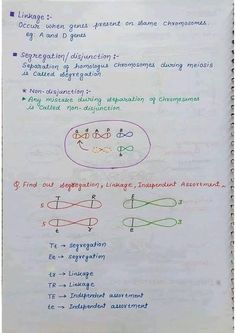 Linkage :-
Occur when genes present on same chromosomes
eg: A and D genes
Segregation/disjunction :-
Separation of homologus chromosomes during meiosis
is called segregation
* Non-disjunction :-
Any mistake during separation of chromosomes
is called Non-disjunction.
Q. Find out segregation, Linkage, Independent Assortment.
T R E
S S
t r e
Tt → segregation
Ee → segregation
tr → Linkage
TR → Linkage
TE → Independent assortment
te → Independent assortment